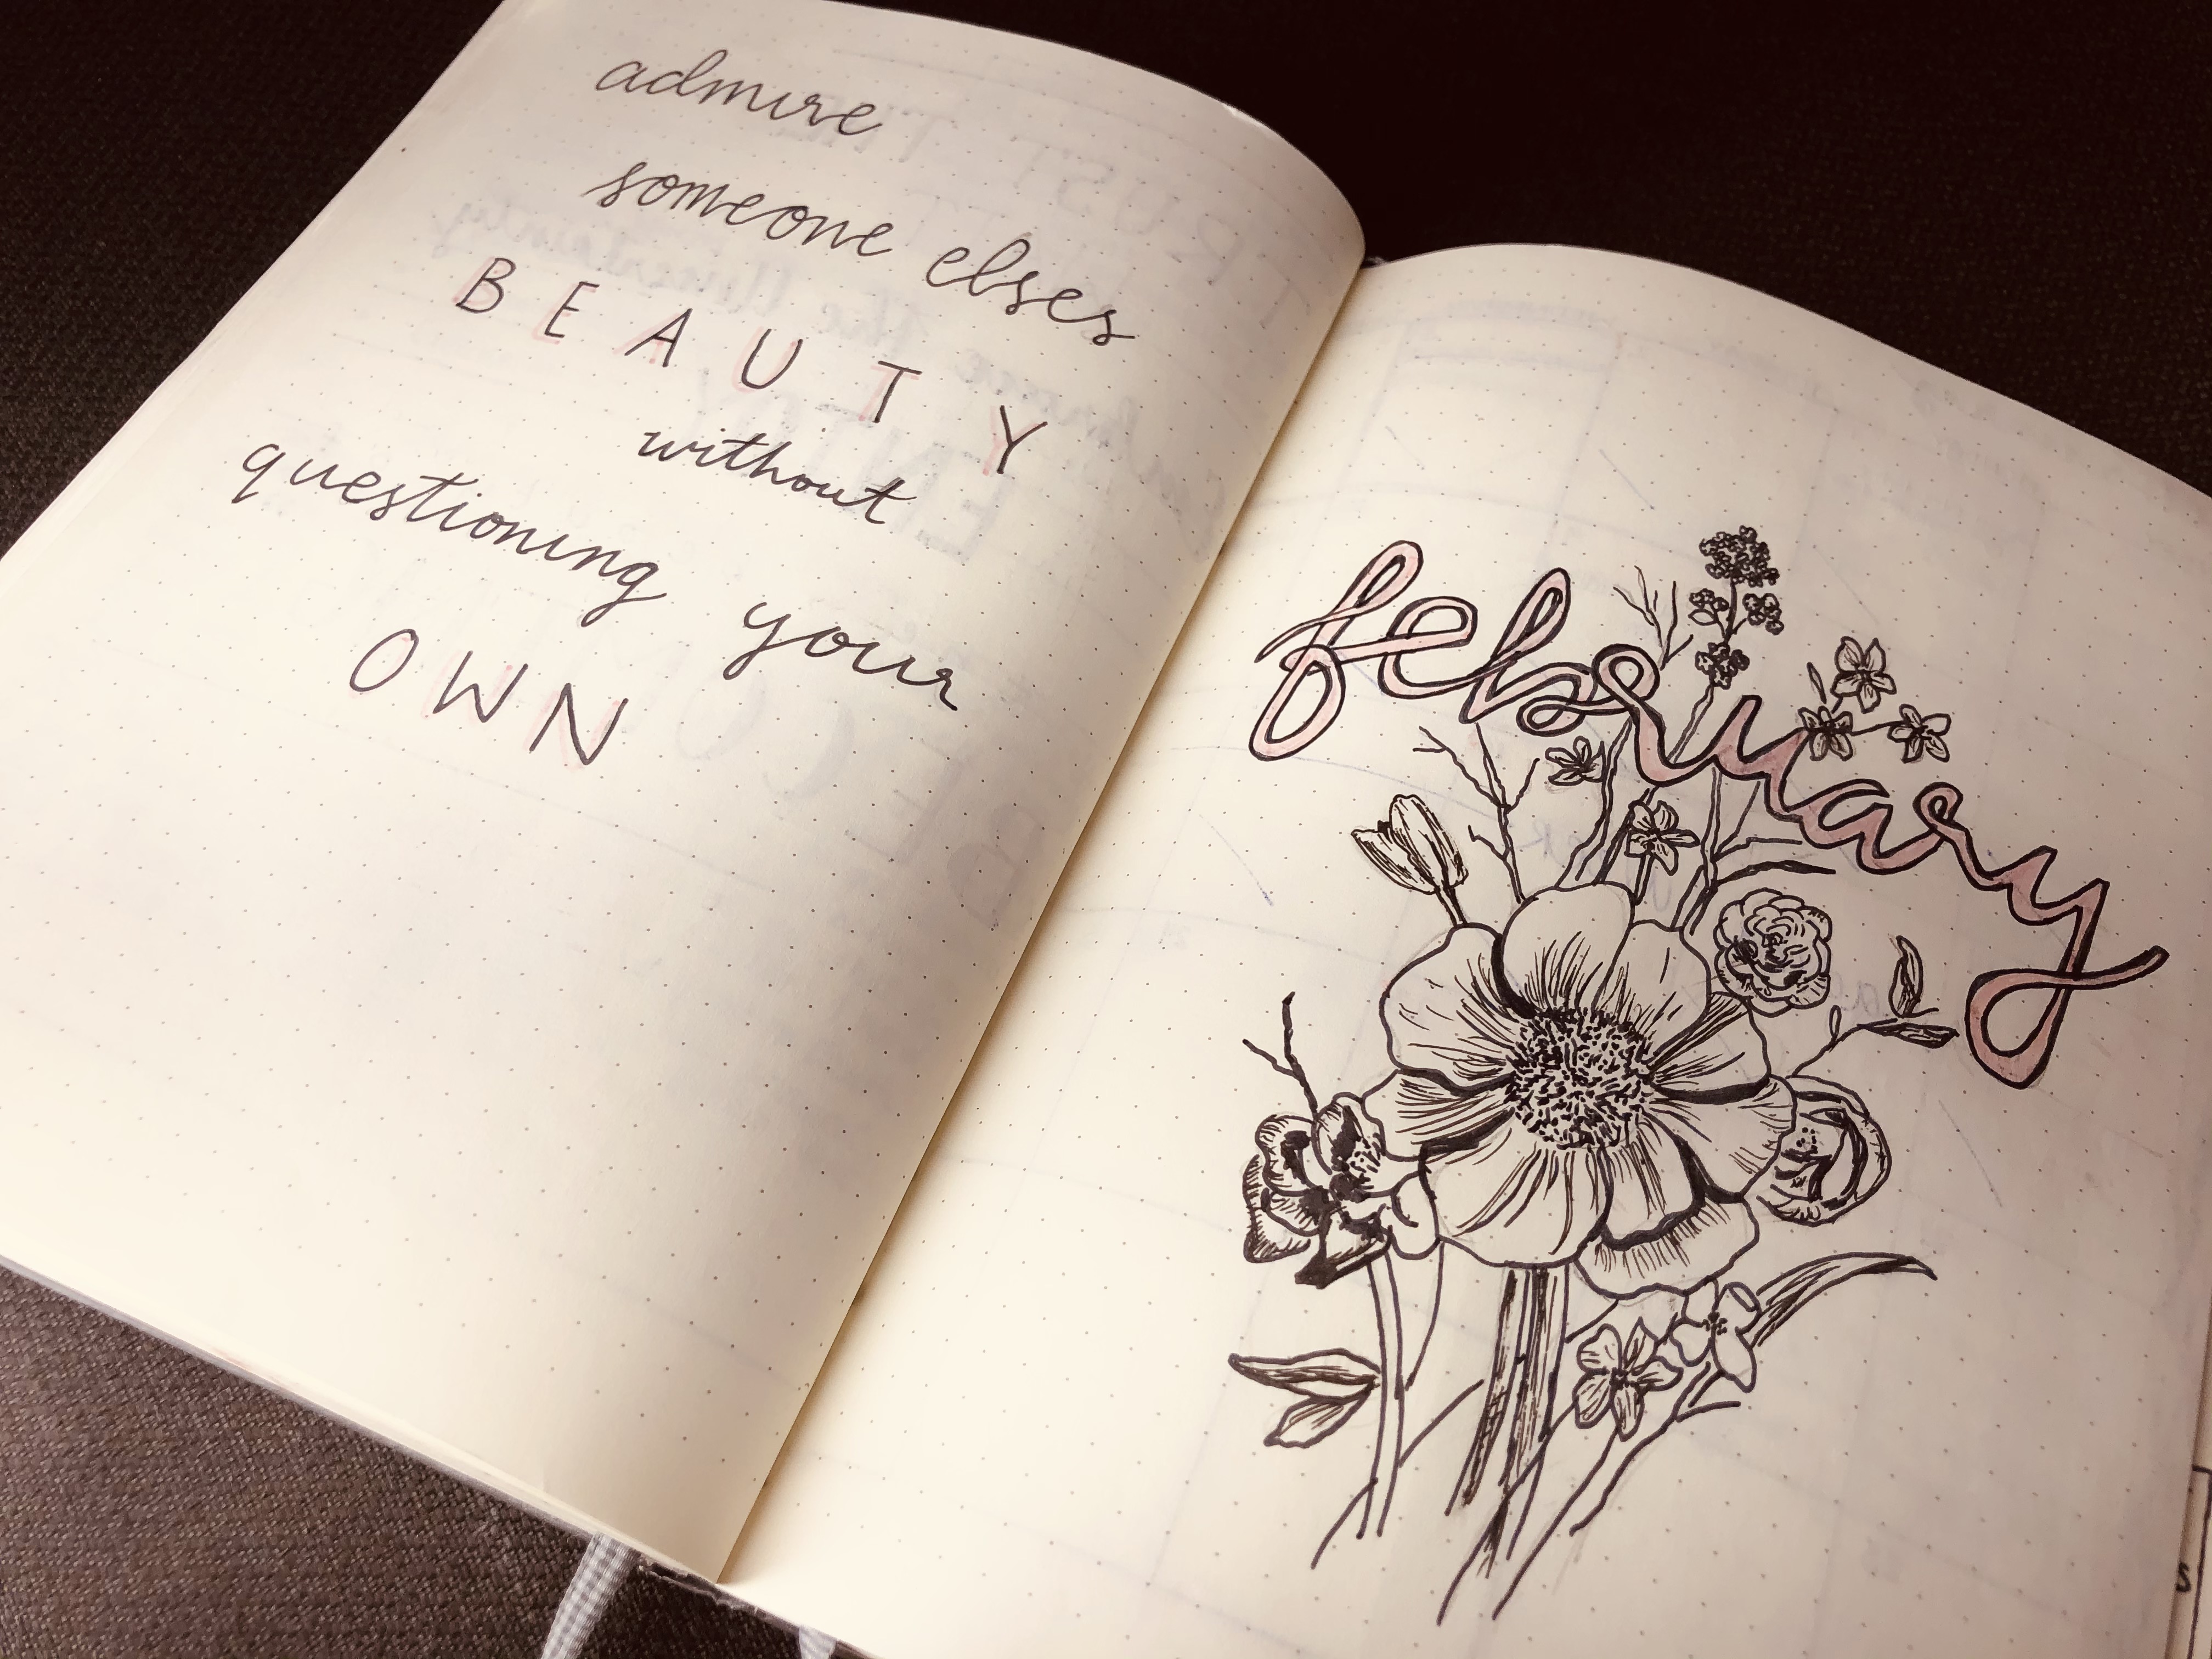 admire
someone elses
BEAUTY
without
questioning your
OWN
february